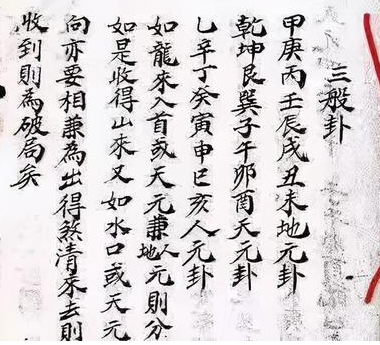 三般卦
甲庚丙壬辰戌丑未地元卦
乾坤艮巽子午卯酉天元卦
乙辛丁癸寅申巳亥人元卦
如龍來入首或天元兼地人元則分
如是收得山來又如水口或天元
向亦要相兼為出得煞清來去則
收到則為破局矣